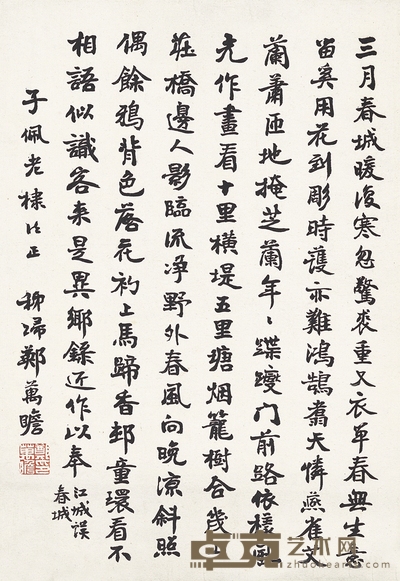 三月春城暖復寒忽驚裘重又衣單春無生意
苗奚用花到彫時護亦難鴻鵠翥天憐燕雀
蕭匝地掩芝蘭年〻蹀躞門前路依樣
光作畫看十里橫堤五里塘烟籠樹合幾
莊橋邊人影臨流淨野外春風向晚涼斜照
偶餘鴉背色落花初上馬蹄香邨童環看不
相語似識客來是異鄉錄近作以奉
江城誤
春城
子佩老棣法正 鄭萬瞻
卓克艺术网
zhuokearts.com